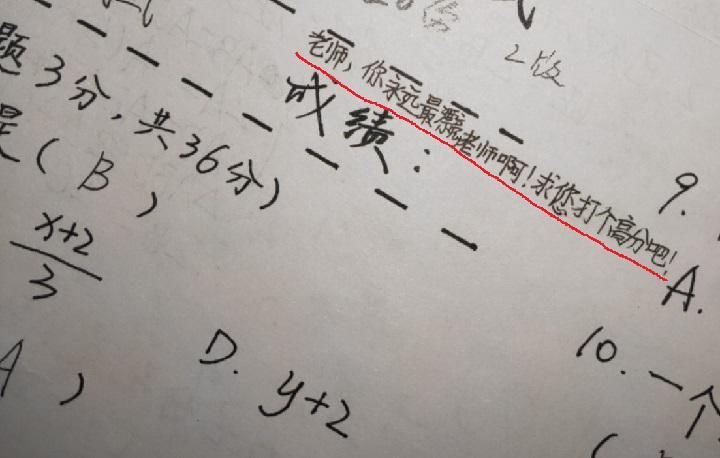 2版
老师，你永远最漂亮老师啊！求您打个高分吧！
成绩：
题3分，共36分）
（B）
x+2
3
A）
D. y+2
9.
A.
10. 一个
（